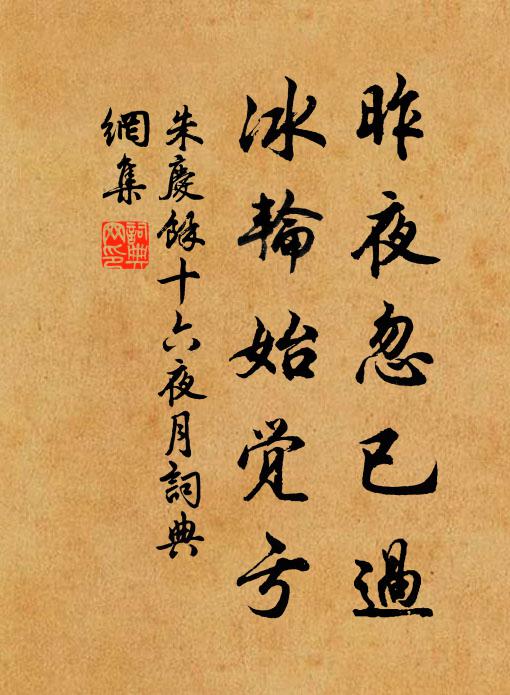 昨夜忽已過
冰輪始觉亏
朱慶餘十六夜月詞典
網集
詞典网印